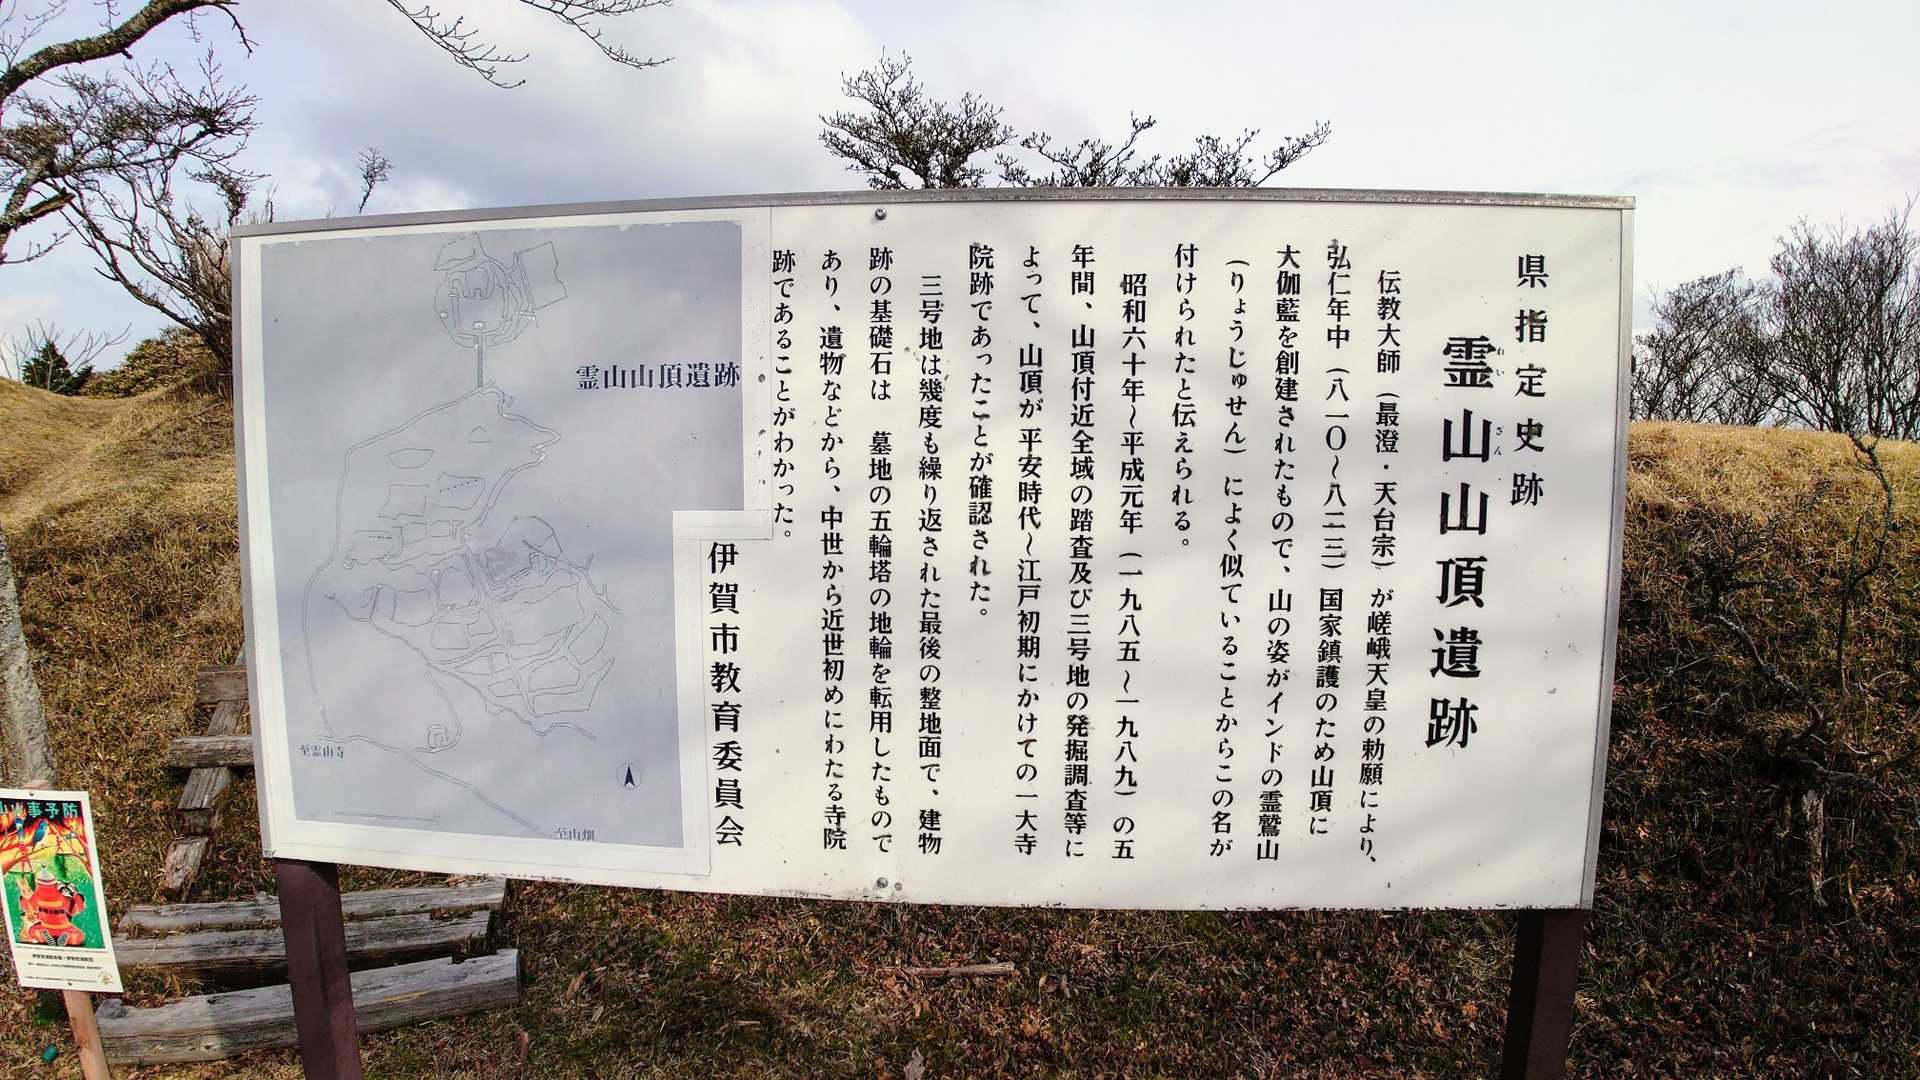 県指定史跡
霊山山頂遺跡
れい
ざん
伝教大師（最澄・天台宗）が嵯峨天皇の勅願により、
弘仁年中（八一〇～八二三）国家鎮護のため山頂に
大伽藍を創建されたもので、山の姿がインドの霊鷲山
（りょうじゅせん）によく似ていることからこの名が
付けられたと伝えられる。
昭和六十年～平成元年（一九八五～一九八九）の五
年間、山頂付近全域の踏査及び三号地の発掘調査等に
よって、山頂が平安時代～江戸初期にかけての一大寺
院跡であったことが確認された。
三号地は幾度も繰り返された最後の整地面で、建物
跡の基礎石は　墓地の五輪塔の地輪を転用したもので
あり、遺物などから、中世から近世初めにわたる寺院
跡であることがわかった。
伊賀市教育委員会
霊山山頂遺跡
至霊山寺
至山畑
山火事予防